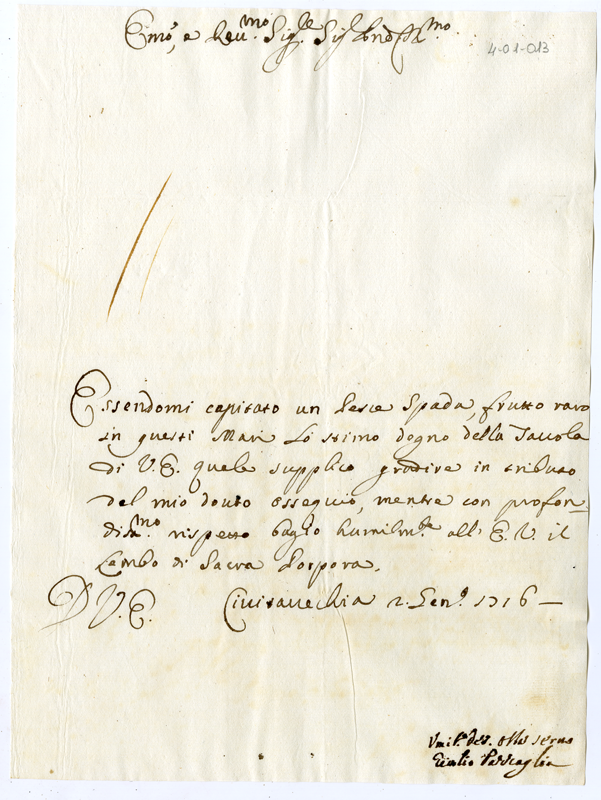 Emo, e Reu.mo Sig.re Sig. Pnē Pr̄on Col.mo
4-01-013
Essendomi capitato un Pesce Spada, frutto raro
in questi Mari Lo stimo degno della Tauola
di V. E. quale supplico gradire in tributo
del mio douto ossequio, mentre con profon-
dis.mo rispetto bagio humilm.te all' E. V. il
Lembo di Sacra Porpora.
D V. E. Ciuitauechia 2. Gen.o 1716 —
Vmil.o deu. obl.o seruo
Giulio Pazzaglia